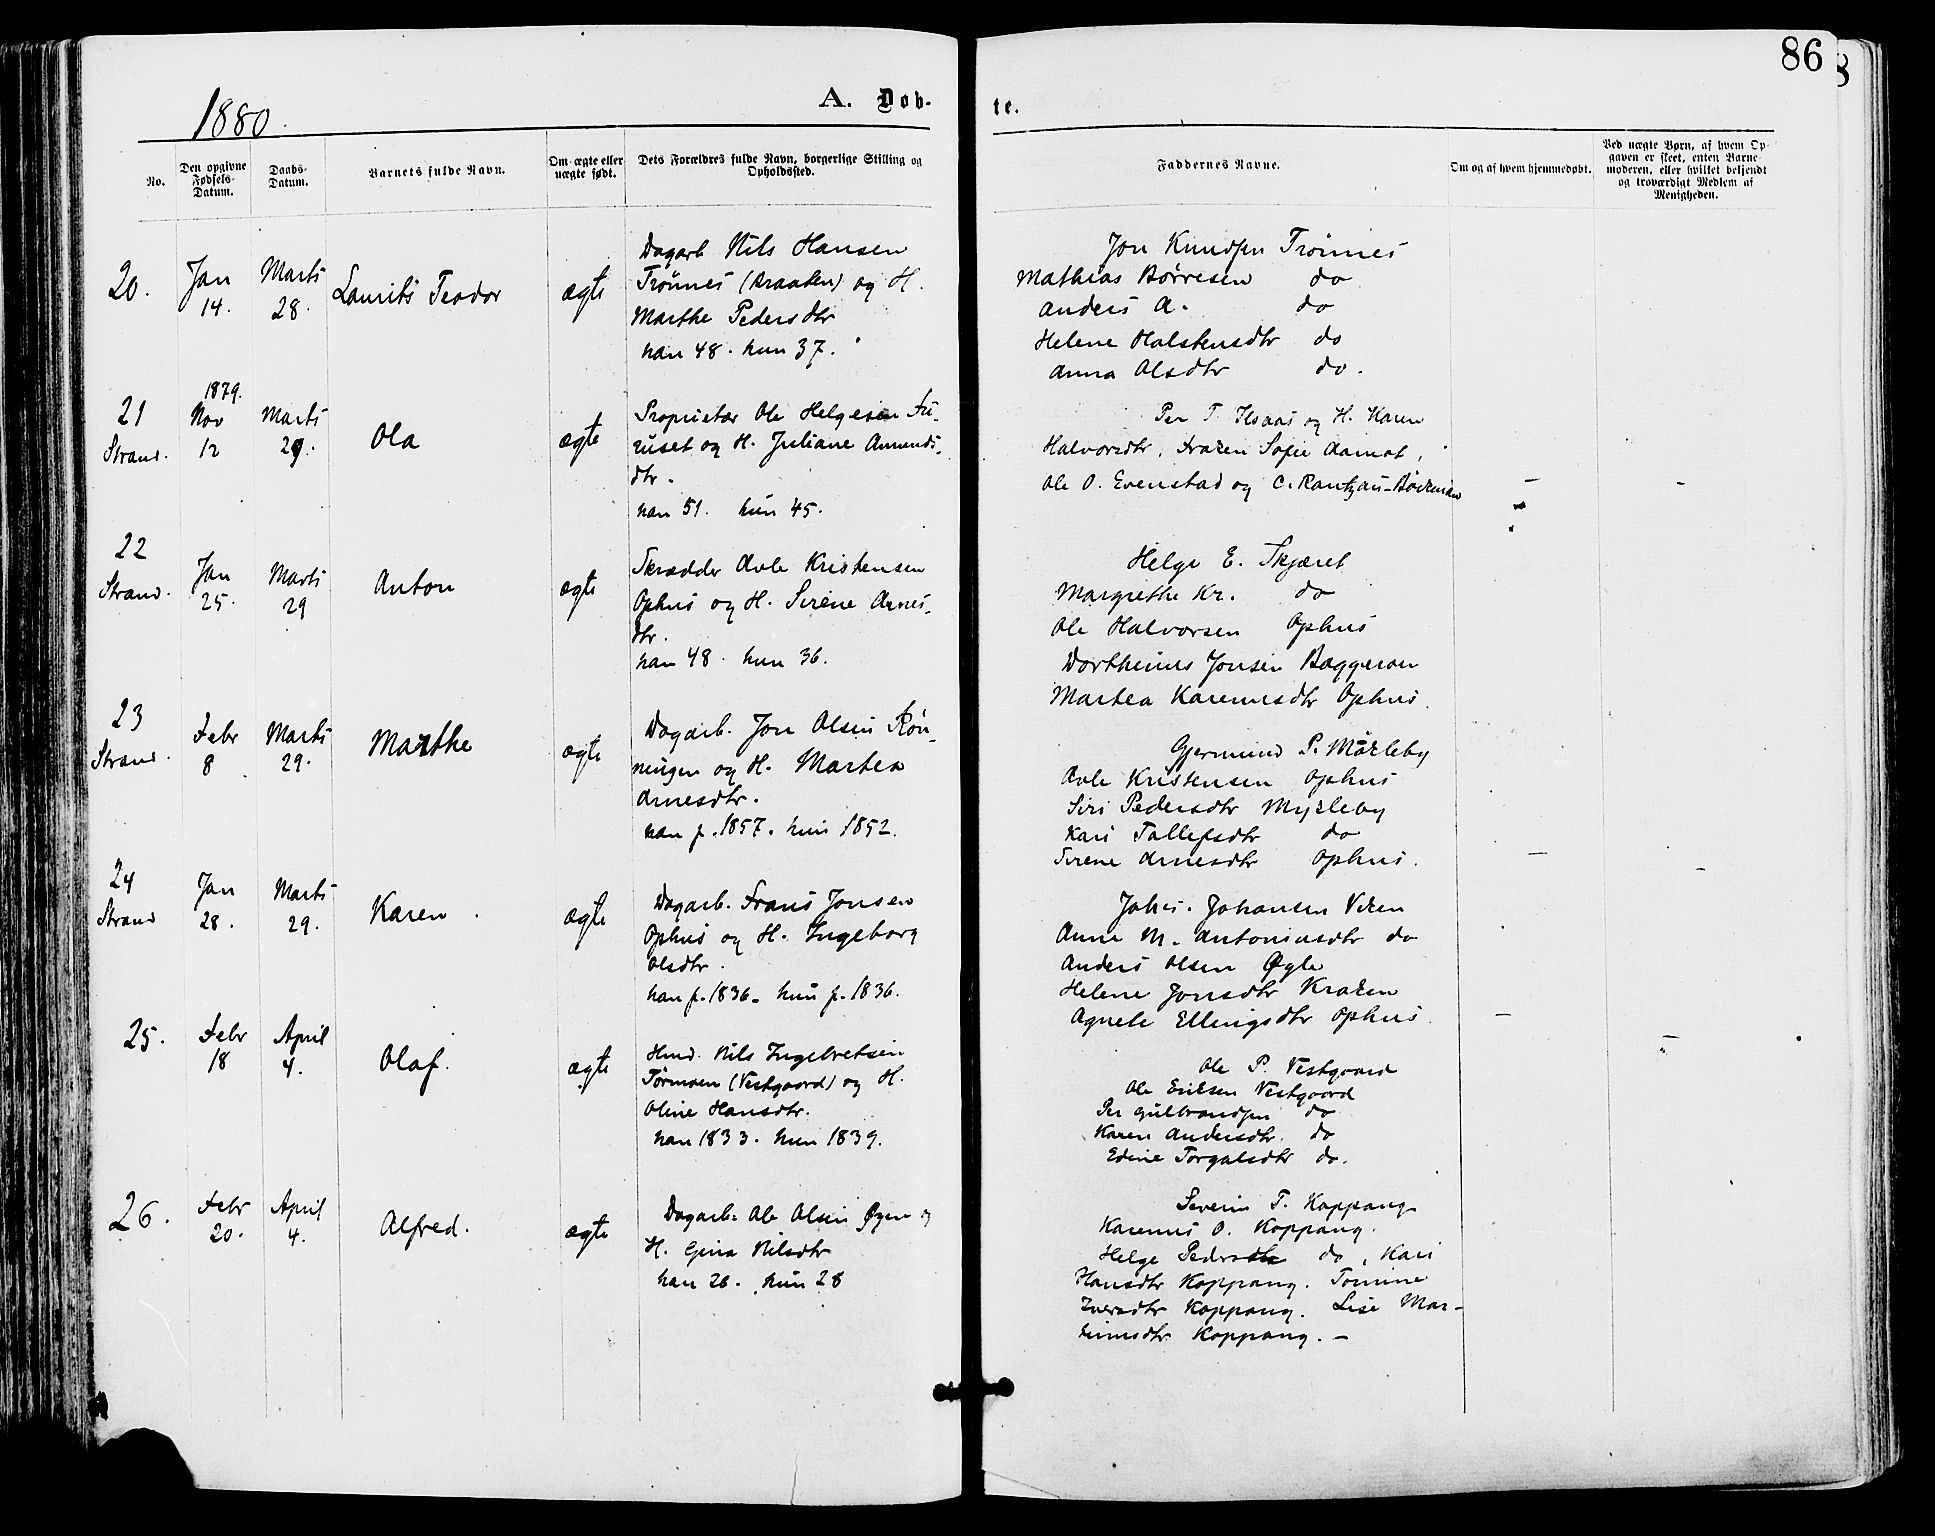 86
1880.
A. Døb-
te.
No.
Den opgivne Fødsels-Datum.
Daabs-Datum.
Barnets fulde Navn.
Om ægte eller uægte født.
Dets Forældres fulde Navn, borgerlige Stilling og Opholdssted.
Faddernes Navne.
Om og af hvem hjemmedøbt.
Ved uægte Børn, af hvem Op-
gaven er skeet, enten Barne-
moderen, eller hvilket betjendt
og troværdigt Medlem af
Menigheden.
20.
Jan
14.
Marts
28.
Laurits Teodor
ægte
Dagarb Nils Hansen
Trønnes (Kraaken) og H.
Marthe Pedersdtr
han 48. hun 37.
Jon Knudsen Trønnes
Mathias Børresen do
Anders A. do
Helene Halstensdtr do
Anna Olsdtr do.
21
Strand.
1879.
Nov
12
Marts
29.
Ola
ægte
Proprietær Ole Helgesen Fu-
ruset og H. Juliane Amunds-
dtr.
han 51. hun 45.
Per T. Ilsaas og H. Karen
Halvorsdtr, Frøken Sofie Aamot,
Ole O. Evenstad og C. Rantzau-Bøckman
22
Strand.
Jan
25.
Marts
29
Anton
ægte
Skrædder Avle Kristensen
Ophus og H. Sirene Arnes-
dtr.
han 48. hun 36.
Helge E. Skjæret
Margrethe Kr. do
Ole Halvorsen Ophus
Dortheus Jonsen Baggeroen
Martea Karenusdtr Ophus.
23
Strand.
Febr
8
Marts
29.
Marthe
ægte
Dagarb. Jon Olsen Røn-
ningen og H. Martea
Arnesdtr.
han f. 1857. hun 1852.
Gjermund P. Mörkeby
Avle Kristensen Ophus
Siri Pedersdtr Myrleby
Kari Tollefsdtr do
Sirene Arnesdtr Ophus.
24
Strand
Jan
28.
Marts
29.
Karen.
ægte
Dagarb. Frans Jonsen
Ophus og H. Ingeborg
Olsdtr.
han f. 1836. hun f. 1836.
Johs. Johansen Viken
Anne M. Antoniusdtr do
Anders Olsen Øgle
Helene Jonsdtr Kroken
Agnete Ellingsdtr Ophus.
25.
Febr
18
April
4.
Olaf.
ægte
Husd. Nils Ingebretsen
Tørmoen (Vestgaard) og H.
Oline Hansdtr.
han 1833. hun 1839.
Ole P. Vestgaard
Ole Eriksen Vestgaard
Per Gulbrandsen do
Karen Andersdtr. do
Edine Torgalsdtr do.
26.
Febr
20.
April
4.
Alfred.
ægte
Dagarb. Ole Olsen Øyen og
H. Gina Nilsdtr
han 26. hun 28
Severin T. Koppang
Karenus O. Koppang.
Helge Peders do, Kari
Hansdtr Koppang. Tomine
Iversdtr Koppang. Lise Mar-
tinusdtr Koppang. –